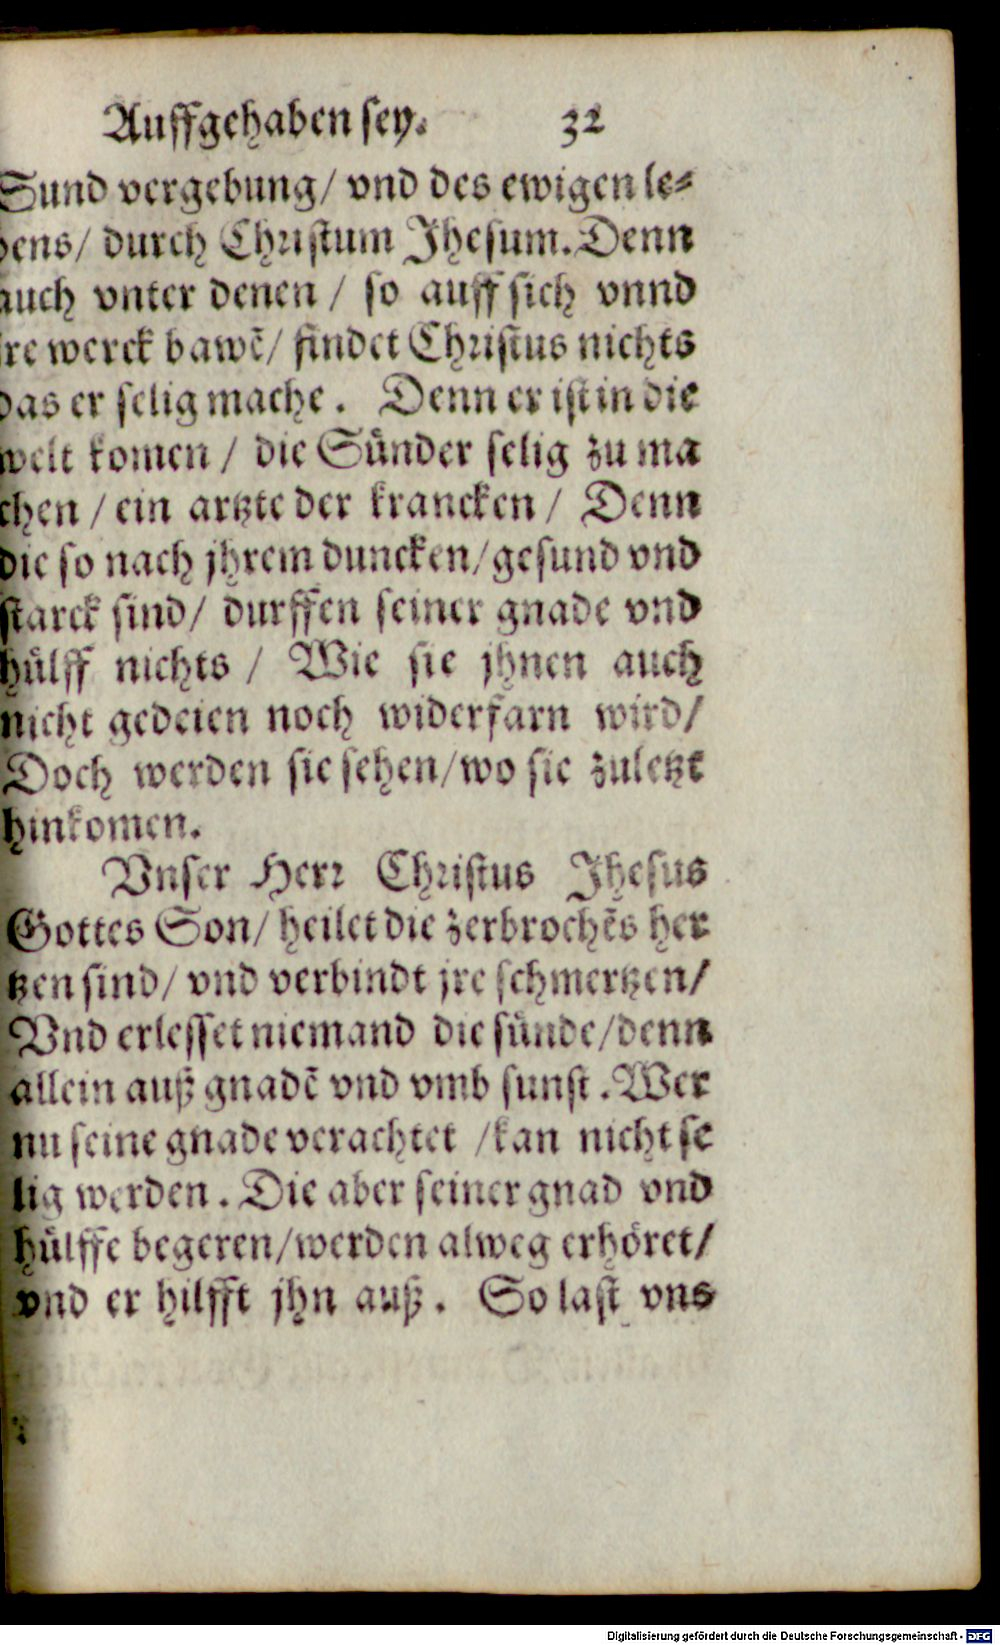 Auffgehaben sey. 32
Sund vergebung/ vnd des ewigen le-
bens/ durch Christum Jhesum. Denn
auch vnter denen / so auff sich vnnd
jre werck bawẽ/ findet Christus nichts
das er selig mache. Denn er ist in die
welt komen / die Sünder selig zu ma
chen / ein artzte der krancken / Denn
die so nach jhrem duncken/gesund vnd
starck sind/ durffen seiner gnade vnd
hülff nichts / Wie sie jhnen auch
nicht gedeien noch widerfarn wird/
Doch werden sie sehen/wo sie zuletzt
hinkomen.
Vnser Herr Christus Jhesus
Gottes Son/ heilet die zerbrochẽs her
tzen sind/ vnd verbindt jre schmertzen/
Vnd erlesset niemand die sünde/denn
allein auß gnadẽ vnd vmb sunst. Wer
nu seine gnade verachtet /kan nicht se
lig werden. Die aber seiner gnad vnd
hülffe begeren/werden alweg erhöret/
vnd er hilfft jhn auß. So last vns
Digitalisierung gefördert durch die Deutsche Forschungsgemeinschaft - DFG